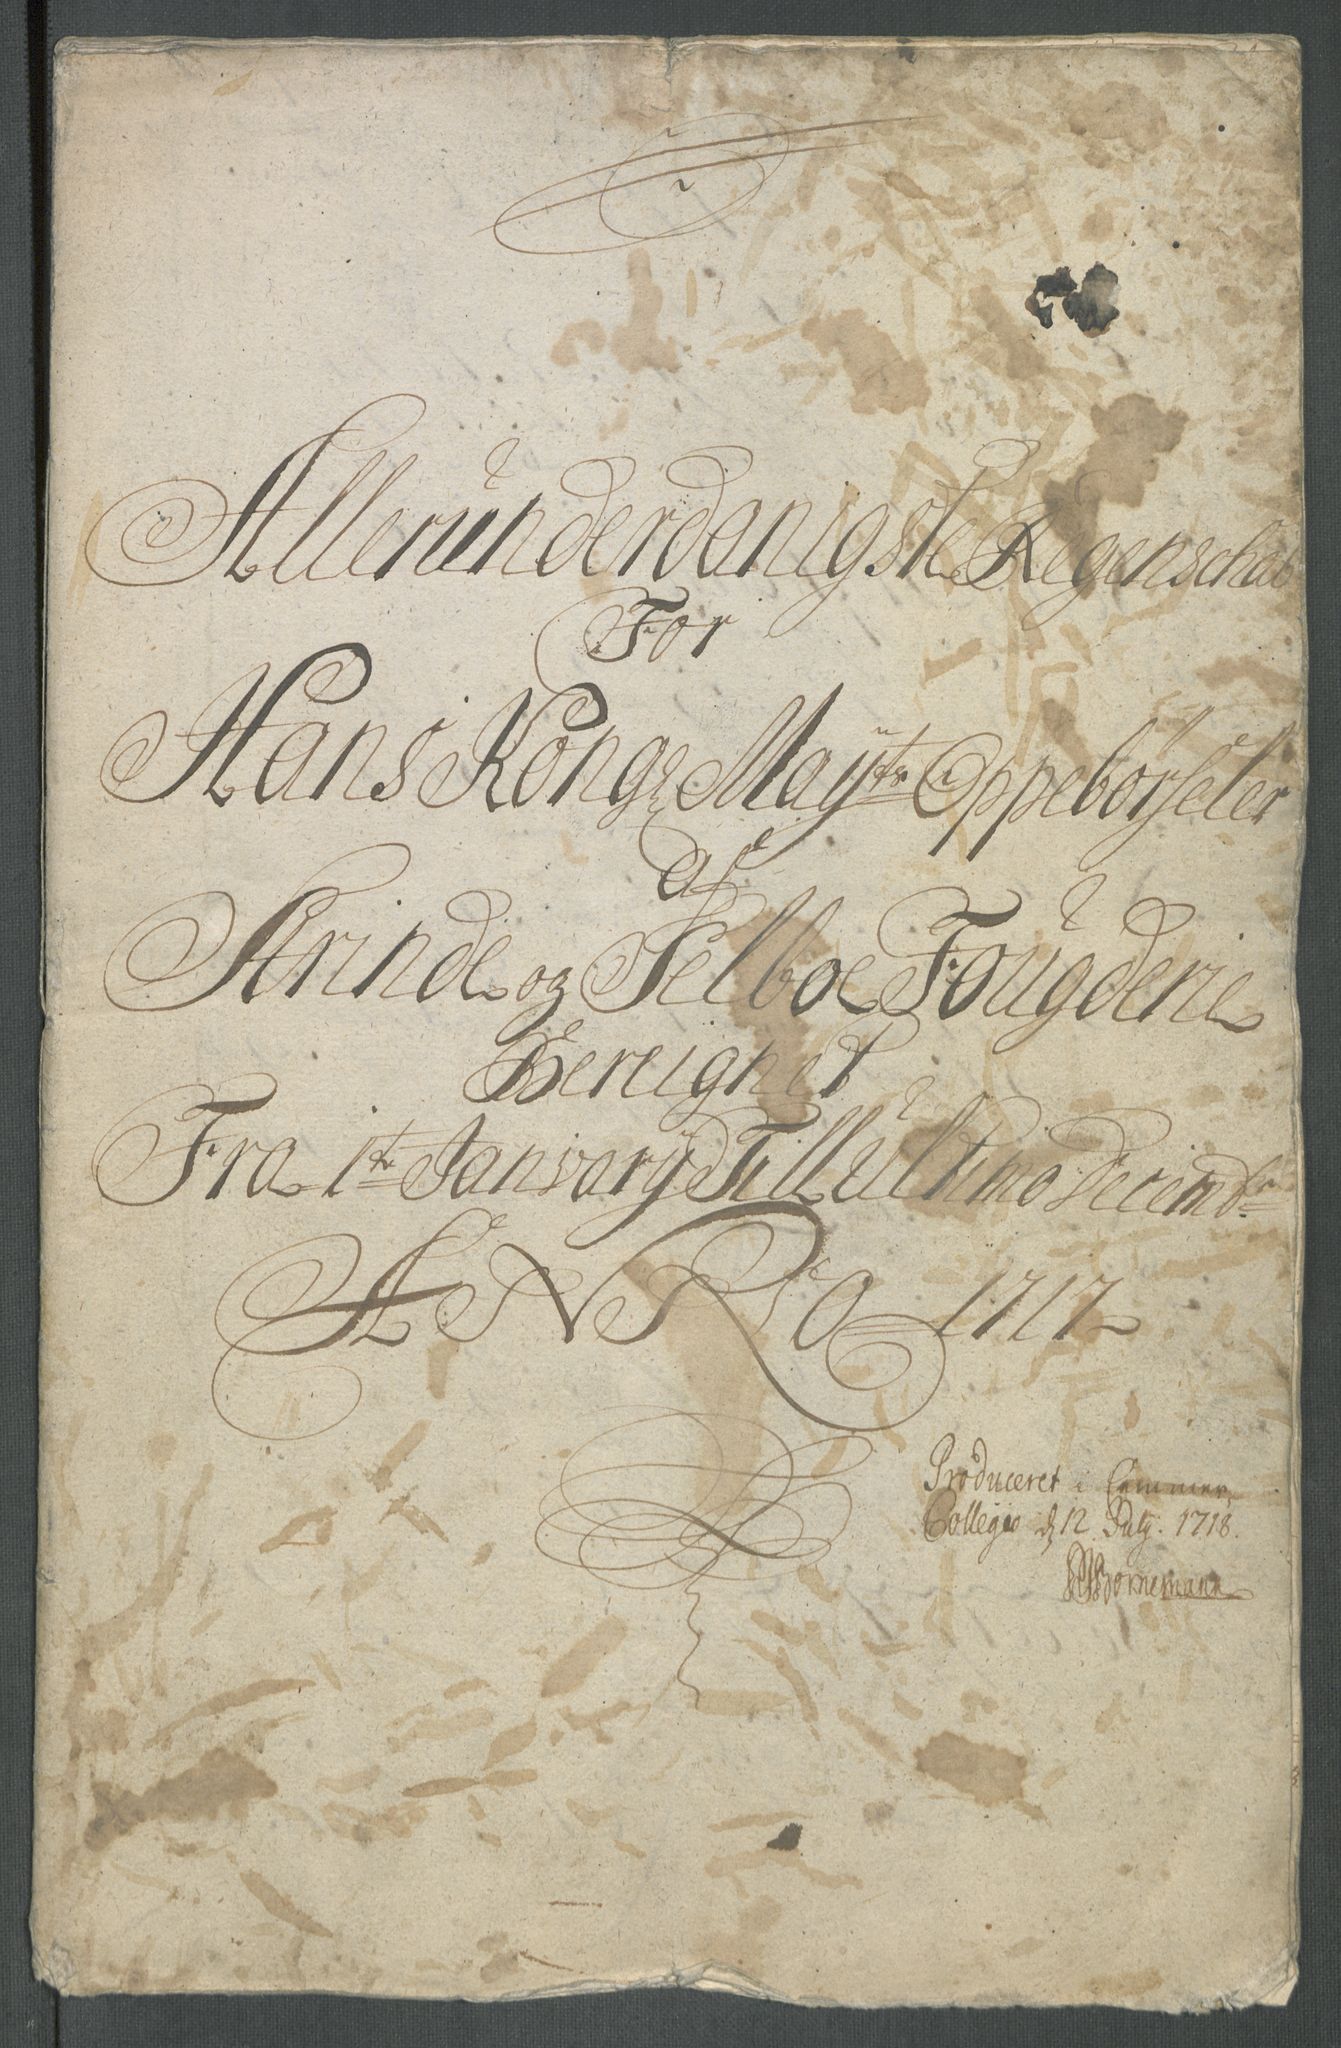 Alleründerdanigste Regenschab
For
Hans Kong: May:tz Oppebörseler
af
Strinde og Selboe Fougderie
Bereignet
Fra 1te January Till Ultimo Decembr
ANNO 1717
Produceret i Cammer
Collegio d 12 July. 1718.
Bornemann